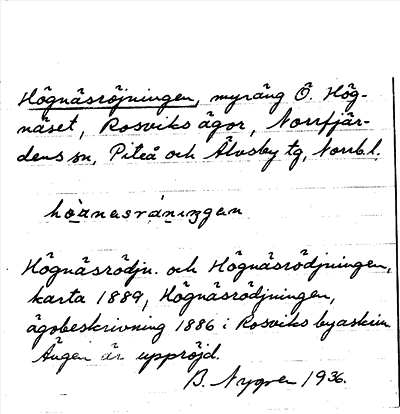 Högnäsröjningen, myräng Ö. Hög-
näset, Rosviks ägor, Norrfjär-
dens sn, Piteå och Älvsby tg, Norrb.l.
Högnäsrödjn. och Högnäsrödjningen,
karta 1889, Högnäsrödjningen,
ägobeskrivning 1886 i Rosviks byaskrin.
Ängen är uppröjd.
B. Nygren 1936.